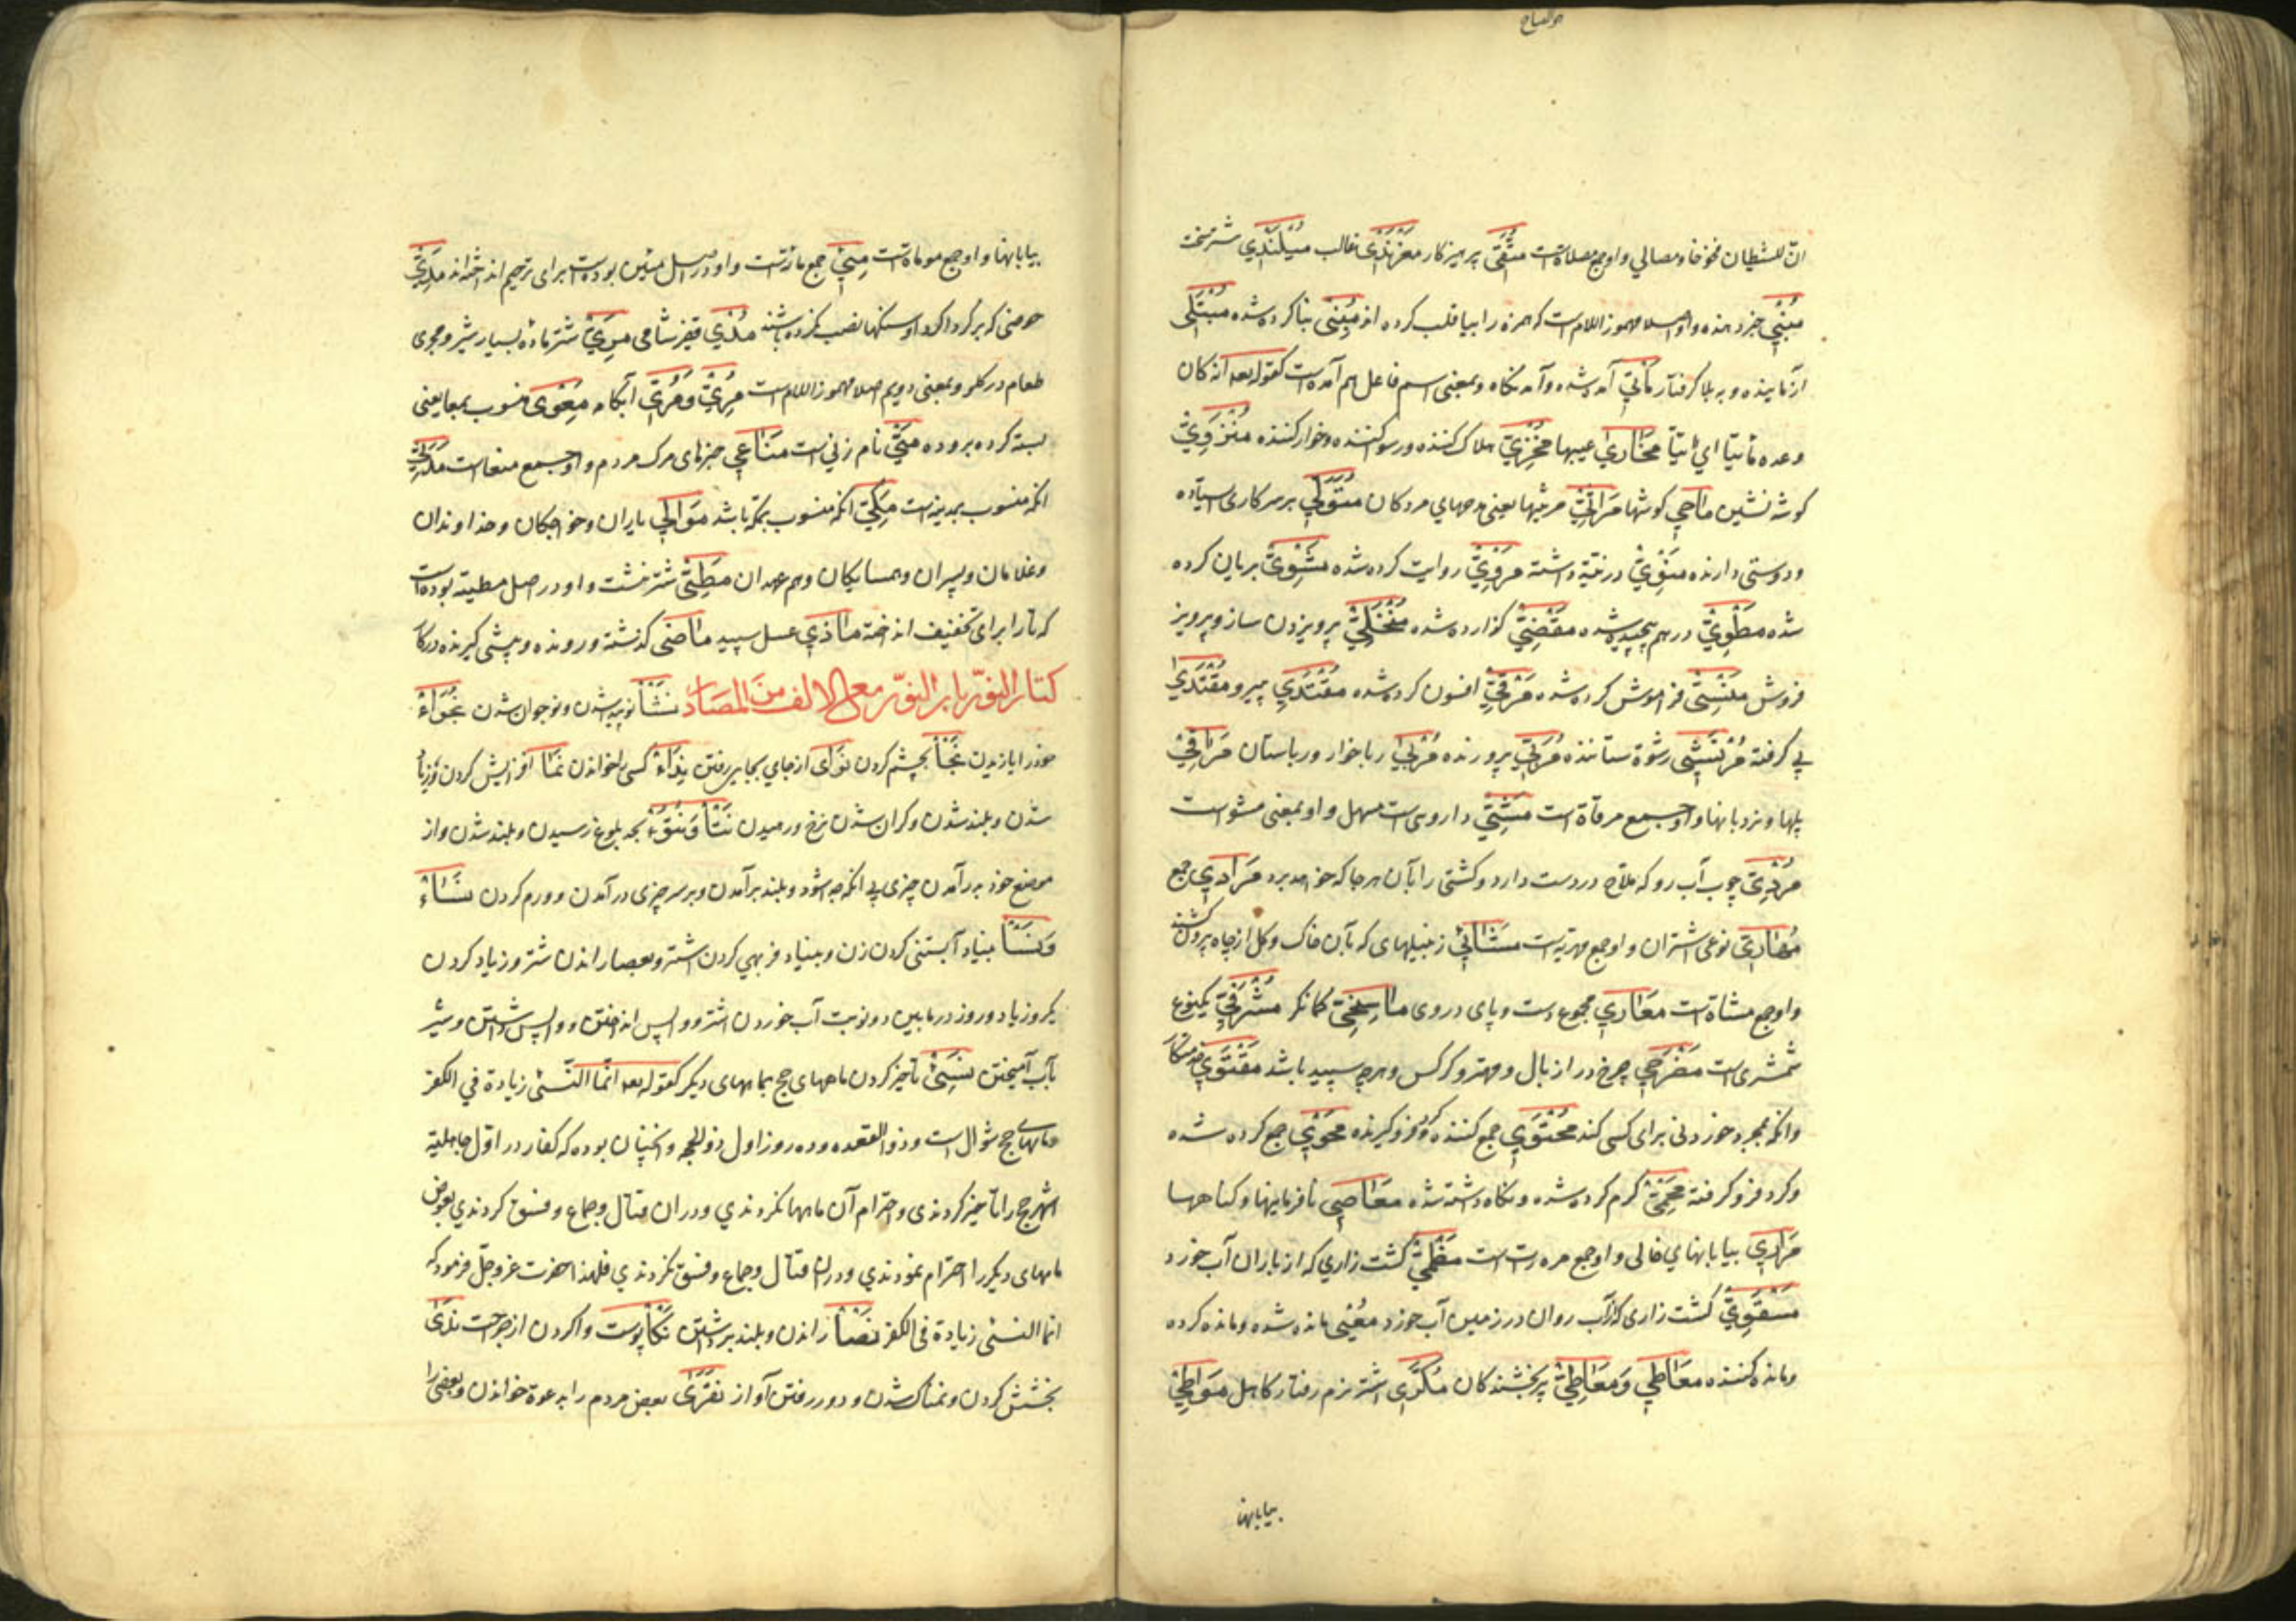 انّ للشیطان فخوخا و مصالی و او جمع مصلاة است متّقی پرهیزکار مغرندی غالب مسلندی شتر سخت
مبنی خبر دهنده و او اصلا مهموز اللام است که همزه را بیا قلب کرده اند مبنی بنا کرده شده مبتلی
آزماینده و به بلا گرفتار مأتی آمده شده و آمدنگاه و بمعنی اسم فاعل هم آمده است کقوله تعه انه کان
وعده مأتیّا ای اتیّا مخازی عیبها مخزی هلاک کننده و رسوا کننده و خوار کننده منزوی
گوشه نشین ماحی مراثی مرثیها یعنی مدحهای مردگان متولّی بر سر کاری ایستاده
و دوستی دارنده منوی در نیّة داشته مروی روایت کرده شده مشوی بریان کرده
شده مطوی در هم پیچیده شده مقضی گزارده شده منخلی پرویزن ساز و پرویزن
فروش منسی فراموش کرده شده مرقی افسون کرده شده مقتدی پیرو مقتدی
پی گرفته مرتشی رشوة ستاننده مربی پرورنده مربی رباخوار و رباستان مراقی
پلها و نردبانها و او جمع مرقاة است مشی داروی است مسهل و او بمعنی مشو است
مردی چوب آب رو که ملاح در دست دارد و کشتی را بآن هر جا که خواهد برد مرادی جمع
مهاری نوعی اشتران و او جمع مهریه است مشائی زنبیلهای که بآن خاک و گل از چاه بیرون کشند
و او جمع مشاة است معاری مجموع دست و پای و روی ماسخی کمانگر مشرفی یکنوع
شمشیری است مضرحی چرغ دراز بال و مهتر و کرکس و هرچه سپید باشد مقتوی خدمتکار
و انکه بمجرد خوردنی برای کسی کند محتوی جمع کننده و گرد فرو گیرنده محوی جمع کرده شده
و گرد فرو گرفته محمی گرم کرده شده و نگاه داشته شده معاصی نافرمانیها و گناهها
مراری بیابانهای خالی و او جمع مرت است مظمی کشت زاری که از باران آب خورد
مسقوی کشت زاری کز آب روان در زمین آب خورد معیی مانده شده و مانده کرده
و مانده کننده معاطی و معاطی پر بخشندگان مکری اشتر نرم رفتار کاهل موامی
بیابانها
بیابانها و او جمع موماة است مئی جمع مائة است و او در اصل مئین بوده است برای ترخیم انداخته اند مدی
حوضی که بر گرداگرد او سنگها نصب نکرده باشند مدی قفیز شامی مری شتر مادهٔ بسیار شیر و مجری
طعام در گلو و بمعنی دویم اصلا مهموز اللام است مری و مری آبکامه معوی منسوب بمعا یعنی
بسته کرده بروده میّ نام زنی است مناعی خبرهای مرگ مردم و او جمع منعا است مدنی
انکه منسوب بمدینه است مکّی انکه منسوب بمکّه باشد موالی یاران و خواجگان و خداوندان
و غلامان و پسران و همسایگان و هم عهدان مطی شتر نشست و او در اصل مطیة بوده است
که تا را برای تخفیف انداخته ماذی عسل سپید ماضی گذشته و رونده و پیشی گیرنده در کار
کتاب النون باب النون مع الالف من المصادر نشأ نو پیدا شدن و نوجوان شدن نجواء
خود را یازیدن نجأ بچشم کردن نوای از جای بجایی رفتن نداء کسی را خواندن نما افزایش کردن و زیاد
شدن و بلند شدن و گران شدن نرخ و رمیدن نتأ و نتوء بحد بلوغ رسیدن و بلند شدن و از
موضع خود بر آمدن چیزی بی انکه جدا شود و بلند بر آمدن و بر سر چیزی در آمدن و ورم کردن نساء
و نسأ بنیاد آبستنی کردن زن و بنیاد فربهی کردن اشتر و بعصا راندن شتر و زیاد کردن
یکروز یا دو روز در مابین دو نوبت آب خوردن اشتر و واپس انداختن و واپس داشتن و شیر
بآب آمیختن نسیء تأخیر کردن ماههای حج بماههای دیگر کقوله تعه انّما النّسیء زیادة فی الکفر
و ماههای حج شوال است و ذو القعده و ده روز اول ذو الحجه و انچنان بوده که کفار در اوّل جاهلیة
اشهر حج را تأخیر کردندی و احترام آن ماهها نکردندی و در ان قتال و جماع و فسق کردندی بعوض
ماههای دیگر را احترام نمودندی و در ان قتال و جماع و فسق نکردندی فلهذا حضرت عزّ و جلّ فرمود که
انما النسیء زیادة فی الکفر نصأ راندن و بلند برداشتن نکأ پوست وا کردن از جراحت ندی
بخشش کردن و نمناک شدن و دور رفتن آواز نقری بعض مردم را بدعوة خواندن و بعضی را